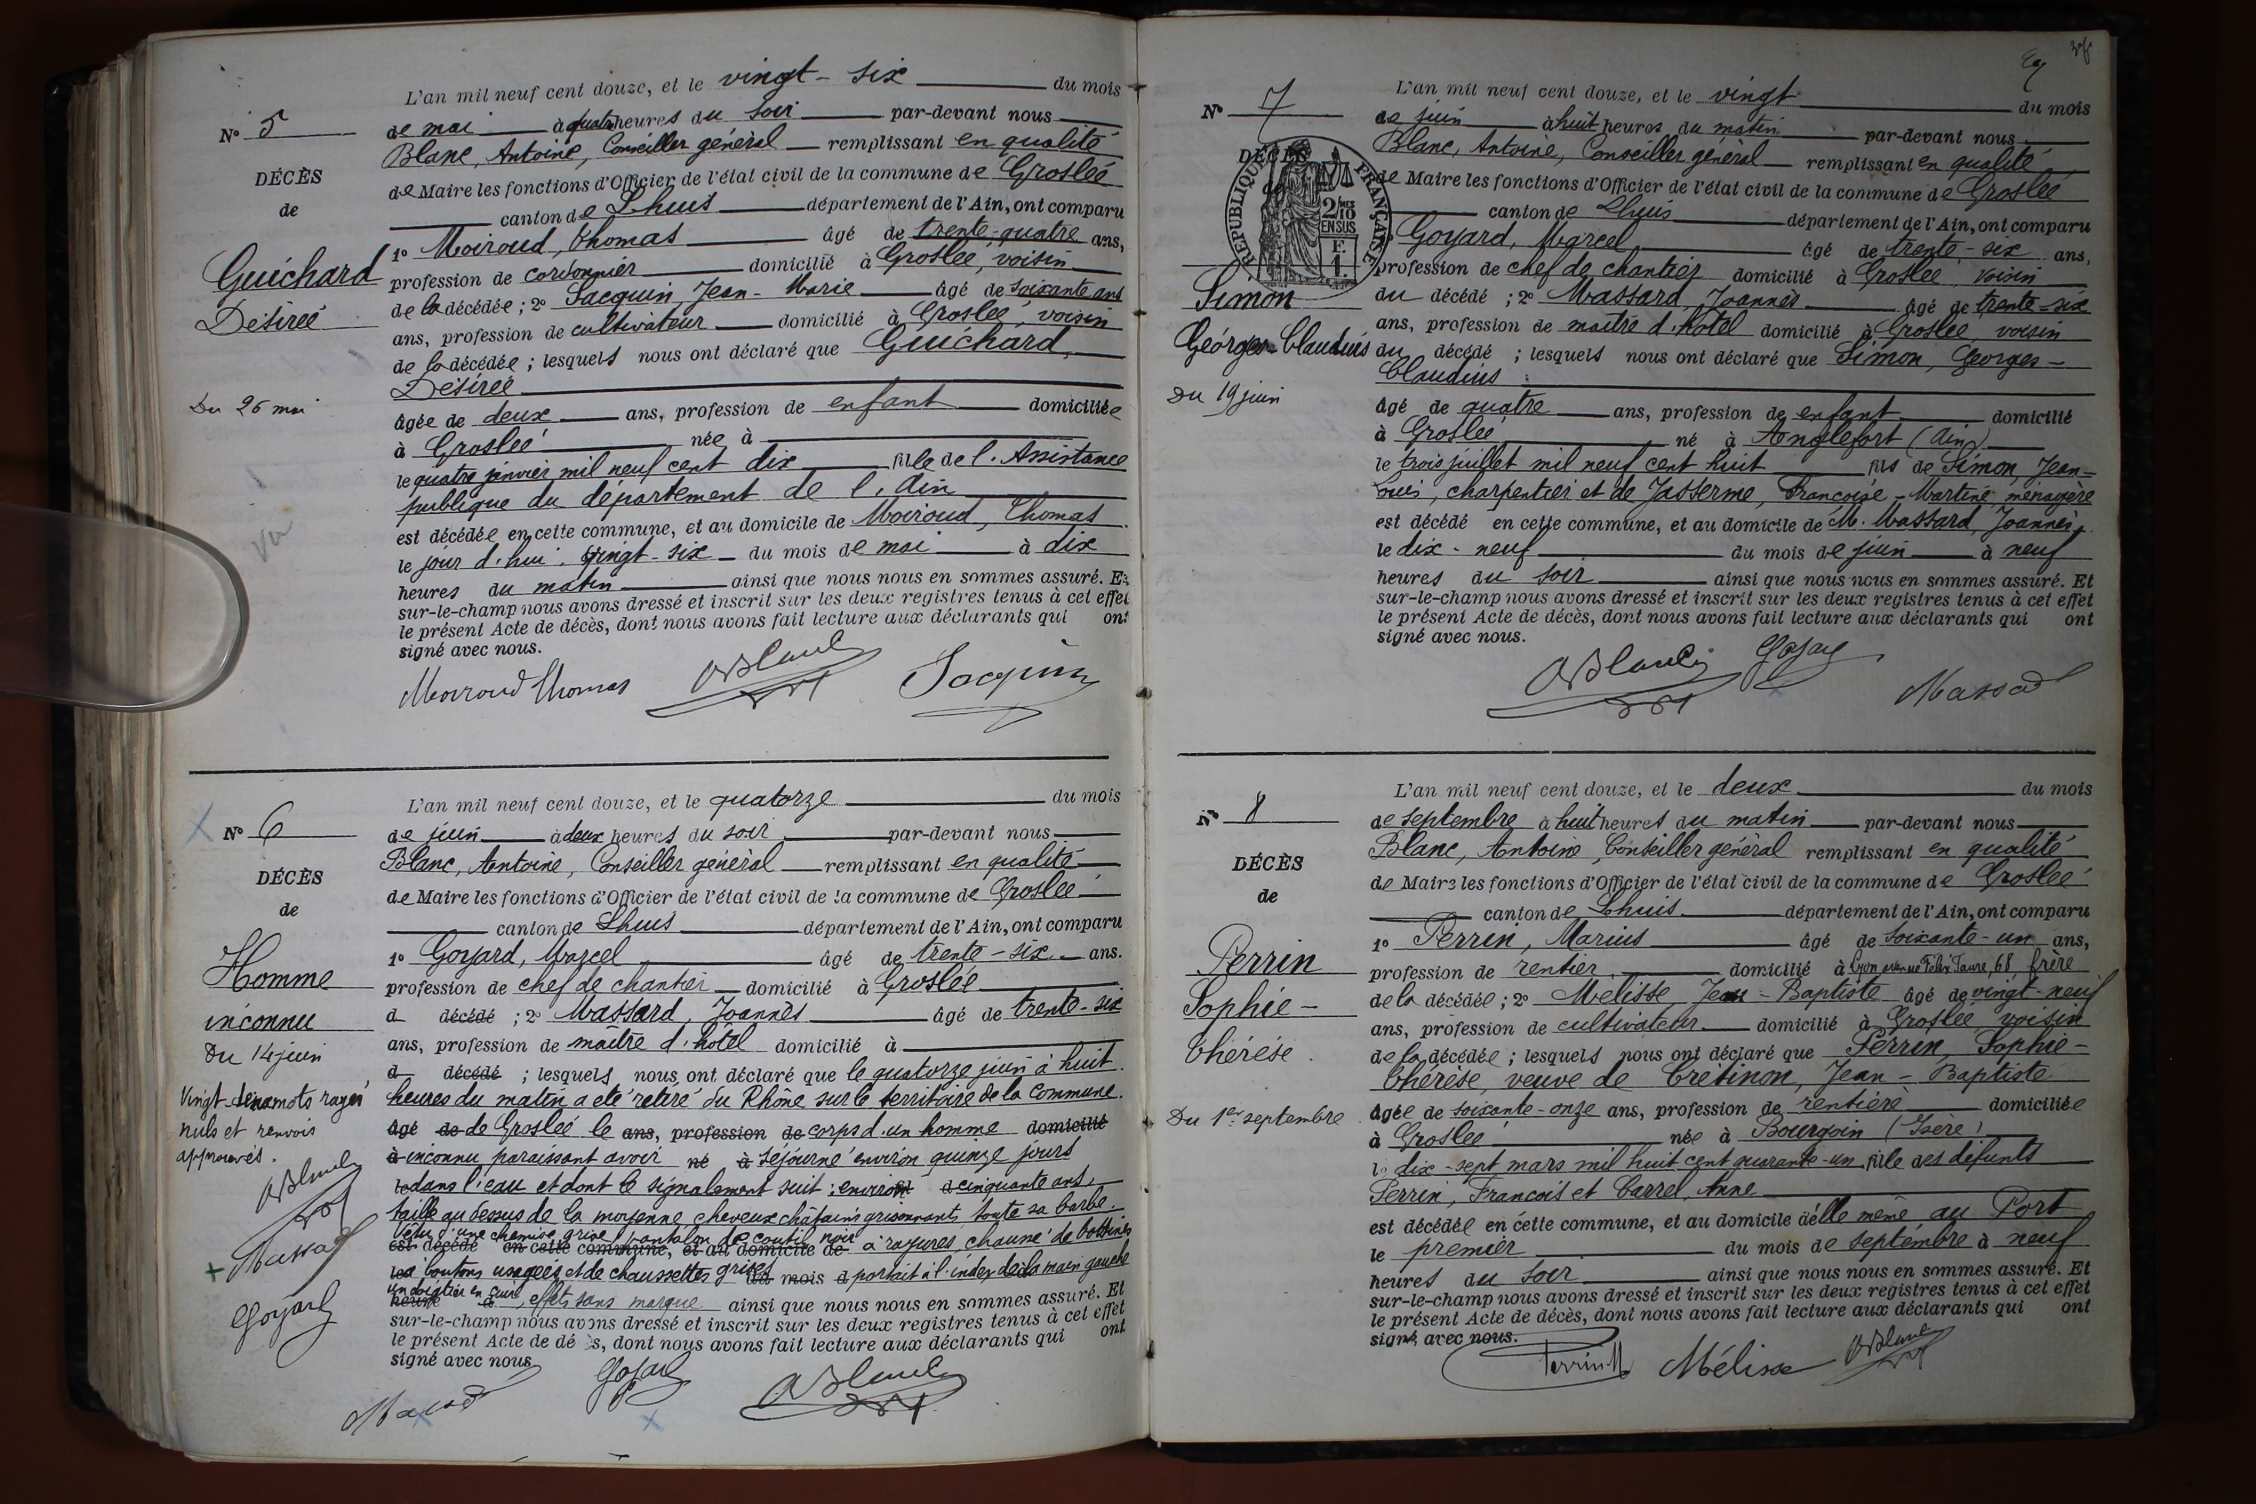 L'an mil neuf cent douze, et le vingt-six du mois
N° 5
de mai à quatre heures du soir par-devant nous
Blanc, Antoine, Conseiller général remplissant en qualité
DÉCÈS
de Maire les fonctions d'Officier de l'état civil de la commune de Groslée
de
canton de Lhuis département de l'Ain, ont comparu
1° Moiroud, Thomas âgé de trente-quatre ans,
Guichard
profession de cordonnier domicilié à Groslée, voisin
de la décédée ; 2° Jacquin, Jean-Marie âgé de soixante ans
Désirée
ans, profession de cultivateur domicilié à Groslée, voisin
de la décédée ; lesquels nous ont déclaré que Guichard,
Désirée
Du 26 mai
âgée de deux ans, profession de enfant domiciliée
à Groslée née à
le quatre janvier mil neuf cent dix fille de l'Assistance
publique du département de l'Ain
est décédée en cette commune, et au domicile de Moiroud, Thomas
Vu
le jour d'hui vingt-six du mois de mai à dix
heures du matin ainsi que nous nous en sommes assuré. Et
sur-le-champ nous avons dressé et inscrit sur les deux registres tenus à cet effet
le présent Acte de décès, dont nous avons fait lecture aux déclarants qui ont
signé avec nous.
Moiroud Thomas ABlanc Jacquin
L'an mil neuf cent douze, et le quatorze du mois
N° 6
de juin à deux heures du soir par-devant nous
Blanc, Antoine, Conseiller général remplissant en qualité
DÉCÈS
de Maire les fonctions d'Officier de l'état civil de la commune de Groslée
de
canton de Lhuis département de l'Ain, ont comparu
1° Goyard, Marcel âgé de trente-six ans.
Homme
profession de chef de chantier domicilié à Groslée
inconnu
d décédé ; 2° Massard, Joannès âgé de trente-six
Du 14 juin
ans, profession de maître d'hôtel domicilié à
d décédé ; lesquels nous ont déclaré que le quatorze juin à huit
Vingt mots rayés
heures du matin a été retiré du Rhône sur le territoire de la commune
nuls et renvois
âgé de de Groslée le ans, profession de corps d'un homme domicilié
approuvés.
à inconnu paraissant avoir né à séjourné environ quinze jours
ABlanc
le dans l'eau et dont le signalement suit : environ cinquante ans,
taille au dessus de la moyenne, cheveux châtains grisonnants, toute sa barbe.
Vêtu d'une chemise grise, pantalon de coutil noir
Massard
est décédé en cette commune, et au domicile de à rayures, chaussé de bottines
le à boutons usagées et de chaussettes grises du mois d portait à l'index de la main gauche
un doigtier en cuir
Goyard
heure d, effets sans marque ainsi que nous nous en sommes assuré. Et
sur-le-champ nous avons dressé et inscrit sur les deux registres tenus à cet effet
le présent Acte de dé s, dont nous avons fait lecture aux déclarants qui ont
signé avec nous
Massard Goyard ABlanc
L'an mil neuf cent douze, et le vingt du mois
N° 7
de juin à huit heures du matin par-devant nous
Blanc, Antoine, Conseiller général remplissant en qualité
DÉCÈS
de
RÉPUBLIQUE FRANÇAISE
2/10 EN SUS
F. 1.
de Maire les fonctions d'Officier de l'état civil de la commune de Groslée
canton de Lhuis département de l'Ain, ont comparu
Goyard, Marcel âgé de trente-six ans,
profession de chef de chantier domicilié à Groslée, voisin
Simon
du décédé ; 2° Massard, Joannès âgé de trente-six
ans, profession de maître d'hôtel domicilié à Groslée voisin
Georges-Claudius
du décédé ; lesquels nous ont déclaré que Simon, Georges-
Claudius
Du 19 juin
âgé de quatre ans, profession de enfant domicilié
à Groslée né à Anglefort (Ain)
le trois juillet mil neuf cent huit fils de Simon, Jean-
Louis, charpentier et de Jasserme, Françoise-Martine ménagère
est décédé en cette commune, et au domicile de M. Massard, Joannès,
le dix-neuf du mois de juin à neuf
heures du soir ainsi que nous nous en sommes assuré. Et
sur-le-champ nous avons dressé et inscrit sur les deux registres tenus à cet effet
le présent Acte de décès, dont nous avons fait lecture aux déclarants qui ont
signé avec nous.
ABlanc Goyard Massard
L'an mil neuf cent douze, et le deux du mois
N° 8
de septembre à huit heures du matin par-devant nous
Blanc, Antoine, Conseiller général remplissant en qualité
DÉCÈS
de Maire les fonctions d'Officier de l'état civil de la commune de Groslée
de
canton de Lhuis département de l'Ain, ont comparu
1° Perrin, Marius âgé de soixante-un ans,
Perrin
profession de rentier domicilié à Lyon avenue Félix Faure, 68, frère
Sophie-
de la décédée ; 2° Mélisse, Jean-Baptiste âgé de vingt-neuf
ans, profession de cultivateur domicilié à Groslée voisin
Thérèse.
de la décédée ; lesquels nous ont déclaré que Perrin, Sophie-
Thérèse, veuve de Crétinon, Jean-Baptiste
Du 1er septembre
âgée de soixante-onze ans, profession de rentière domiciliée
à Groslée née à Bourgoin (Isère)
le dix-sept mars mil huit cent quarante-un fille des défunts
Perrin, François et Carrel, Anne
est décédée en cette commune, et au domicile d'elle même au Port
le premier du mois de septembre à neuf
heures du soir ainsi que nous nous en sommes assuré. Et
sur-le-champ nous avons dressé et inscrit sur les deux registres tenus à cet effet
le présent Acte de décès, dont nous avons fait lecture aux déclarants qui ont
signé avec nous.
Perrin M Mélisse ABlanc